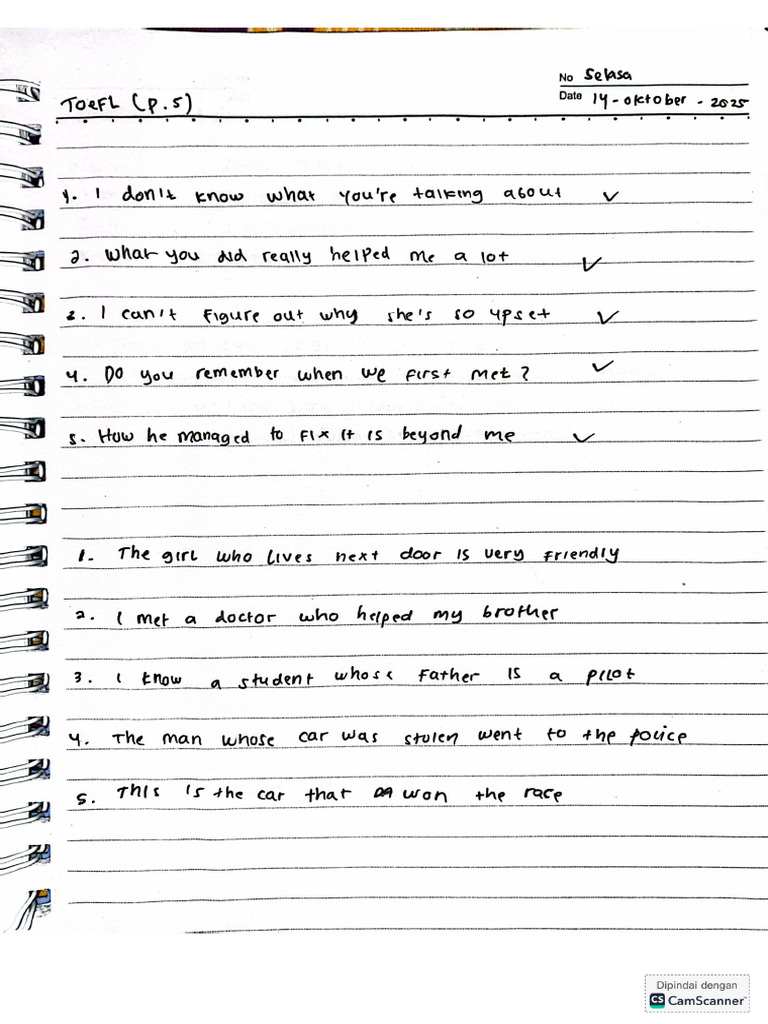 No Selasa
TOEFL (P.5)
Date 14 - Oktober - 2025
1. I don't know what you're talking about ✓
2. What you did really helped me a lot ✓
3. I can't figure out why she's so upset ✓
4. Do you remember when we first met? ✓
5. How he managed to fix it is beyond me ✓
1. The girl who lives next door is very friendly
2. I met a doctor who helped my brother
3. I know a student whose father is a pilot
4. The man whose car was stolen went to the police
5. This is the car that won the race
Dipindai dengan
CS CamScanner